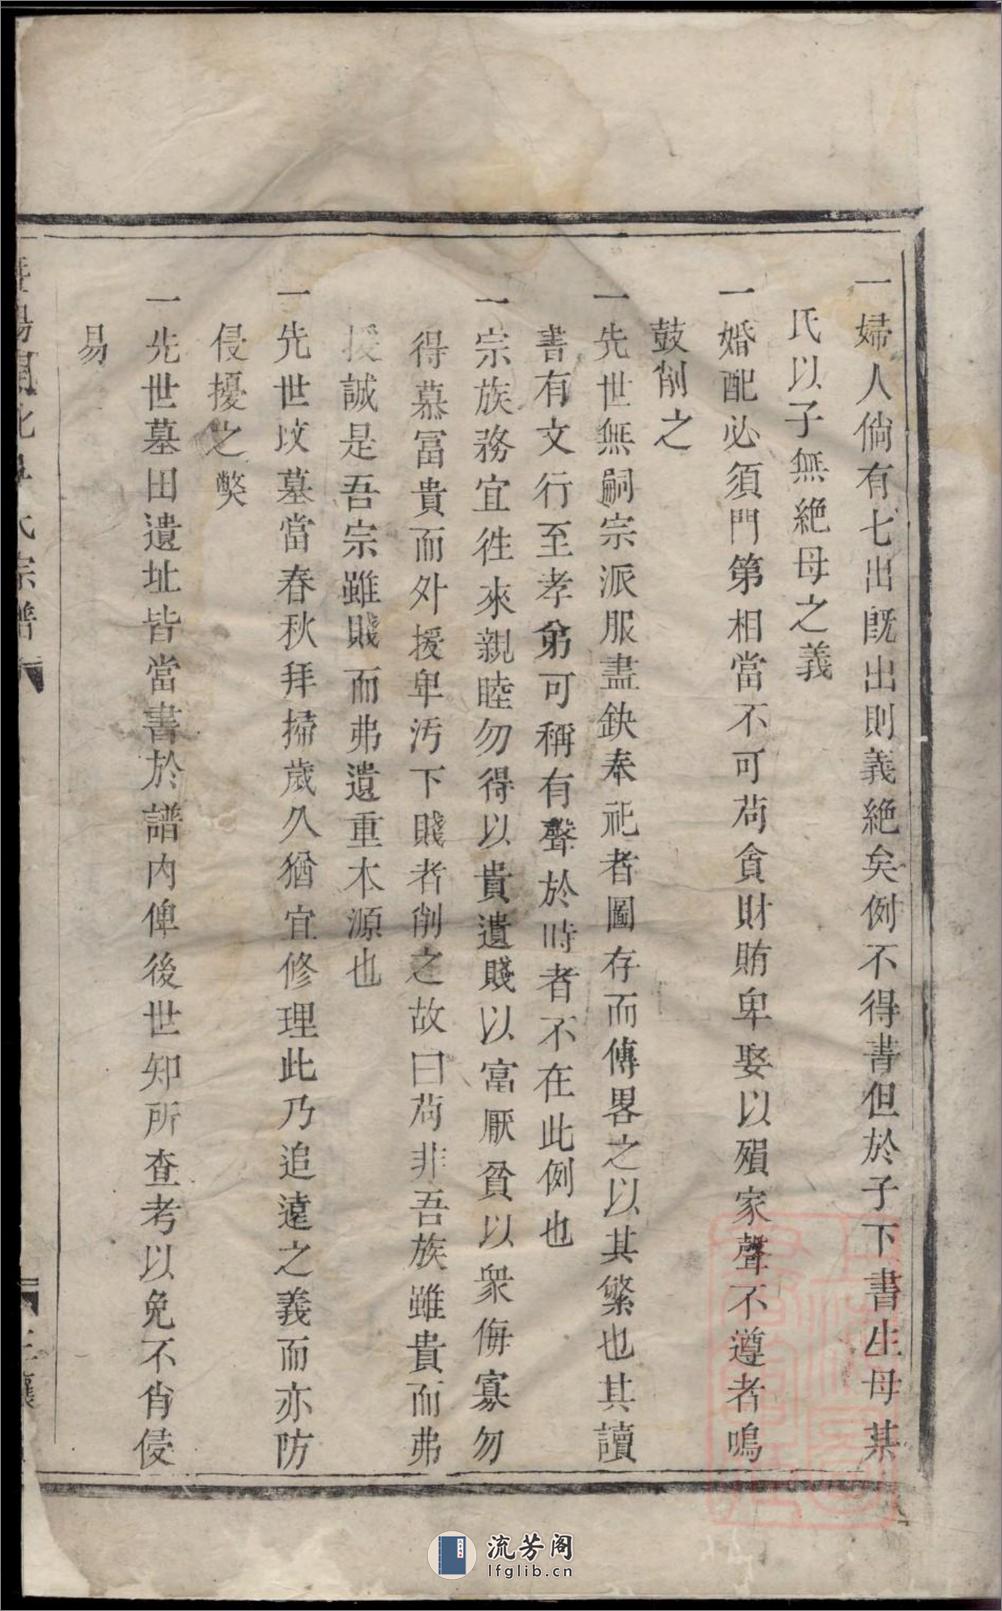 一婦人倘有七出既出則義絕矣例不得書但於子下書生母某
氏以子無絕母之義
一婚配必須門第相當不可苟貪財賄卑娶以殞家聲不遵者鳴
鼓削之
一先世無嗣宗派服盡缺奉祀者圖存而傳畧之以其繁也其讀
書有文行至孝弟可稱有聲於時者不在此例也
一宗族務宜往來親睦勿得以貴遺賤以富厭貧以衆侮寡勿
得慕富貴而外援卑汚下賤者削之故曰苟非吾族雖貴而弗
援誠是吾宗雖賤而弗遺重本源也
一先世坟墓當春秋拜掃歲久猶宜修理此乃追遠之義而亦防
侵擾之獘
一先世墓田遺址皆當書於譜內俾後世知所查考以免不肖侵
易
氏宗譜
流芳阁
lfglib.cn